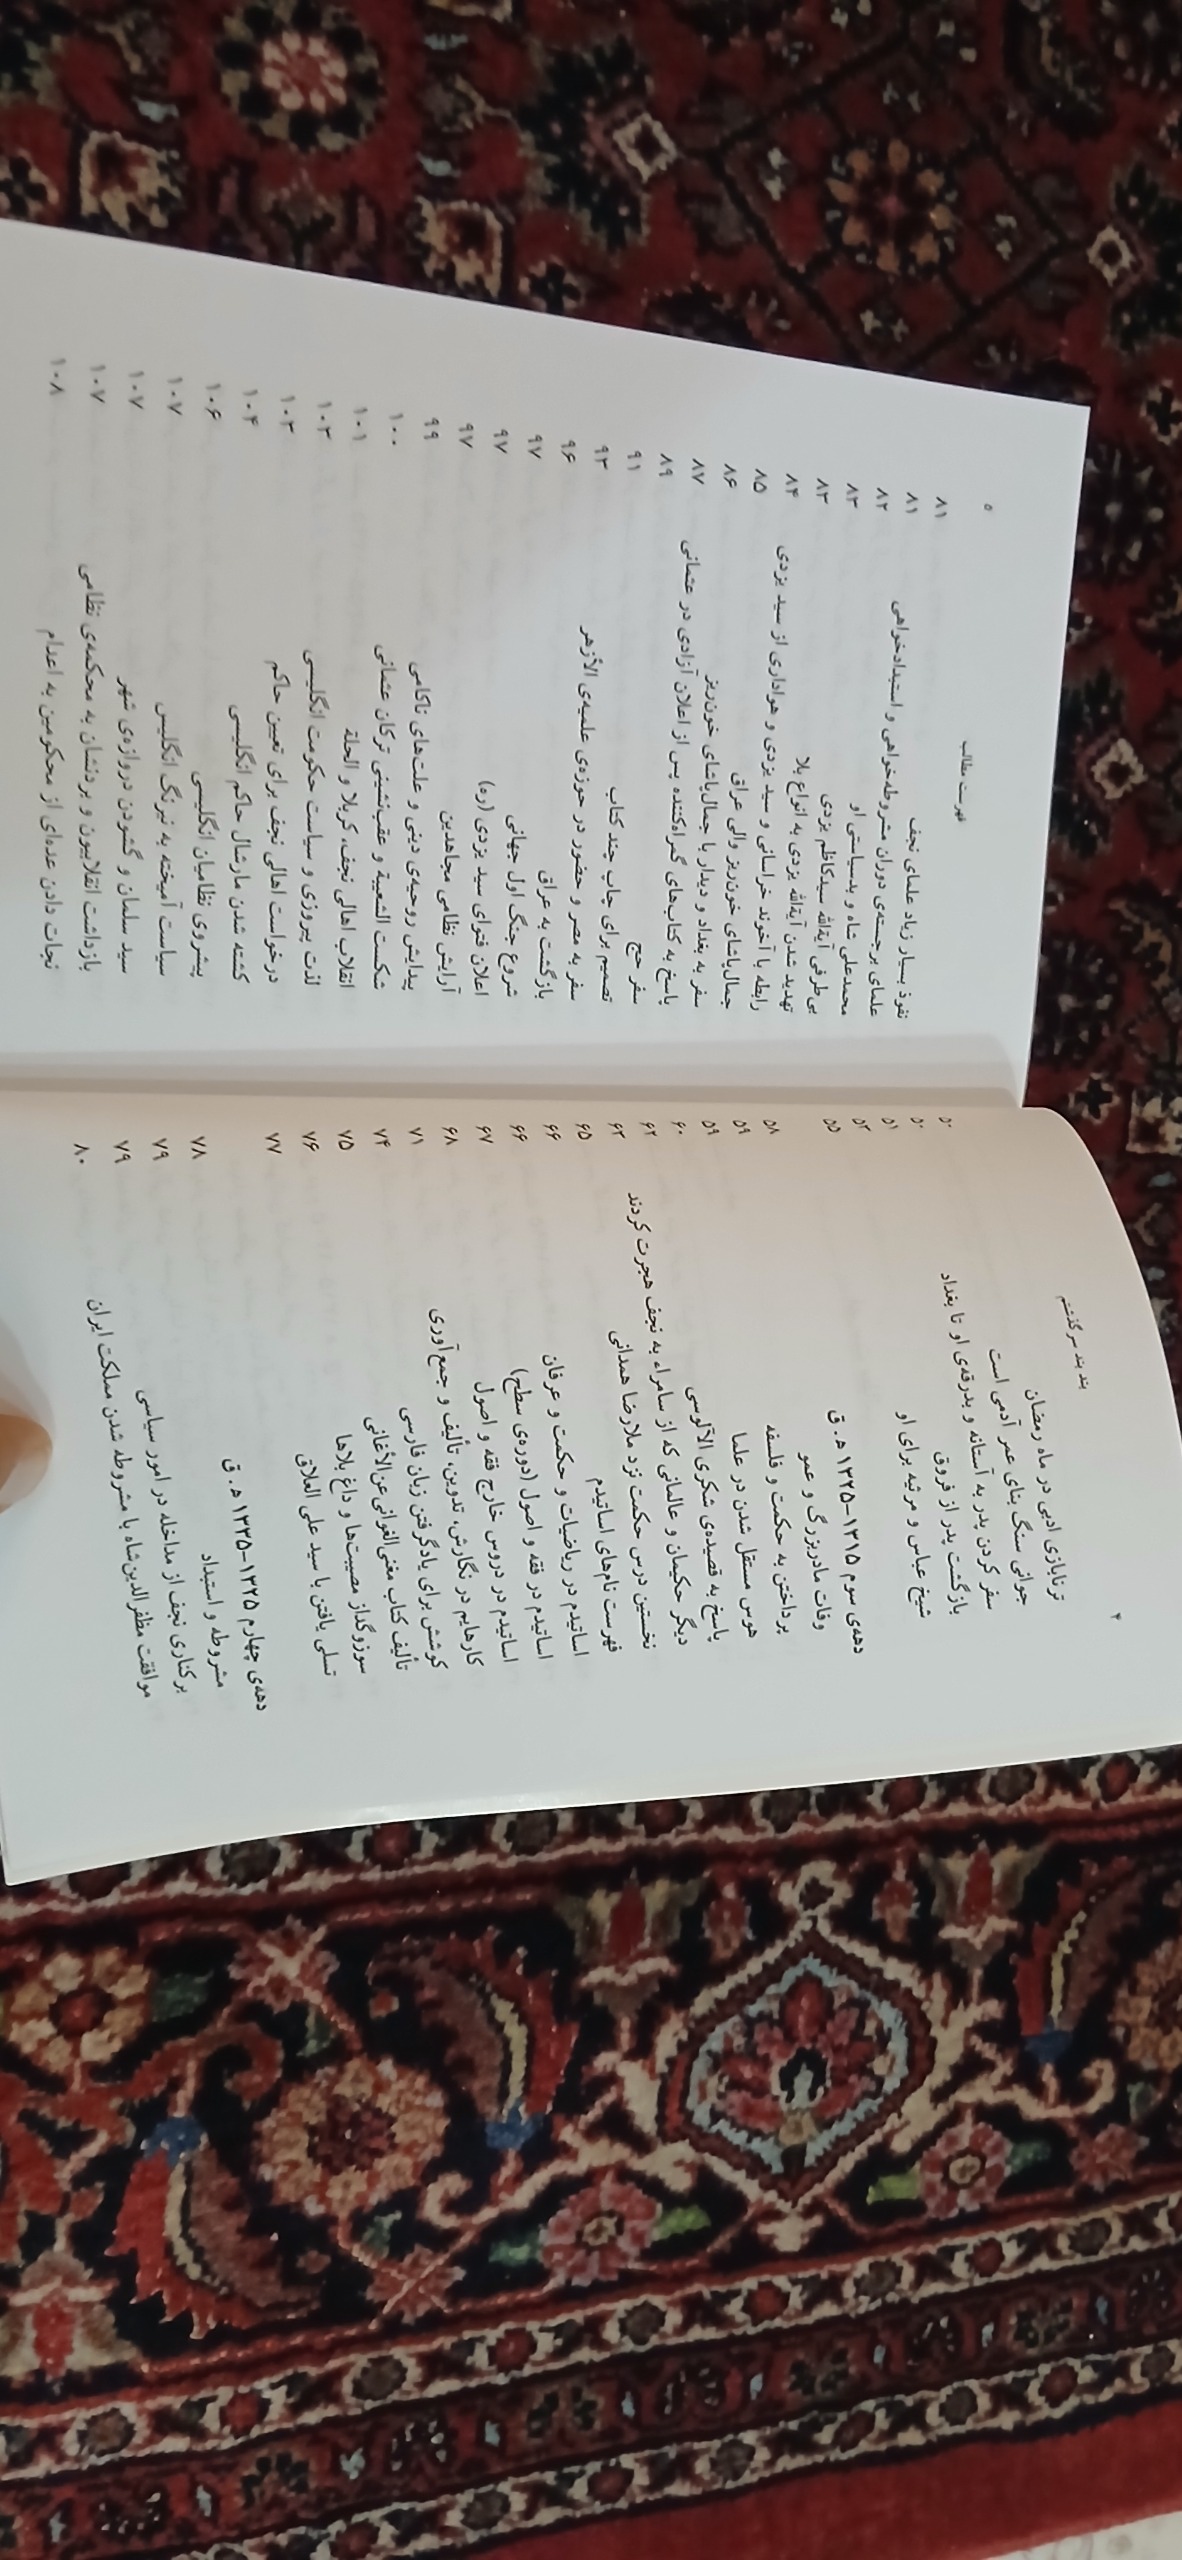 ۴
بند بند سرگذشتم
ترنابازی ادبی در ماه رمضان ۵۰
جوانی سنگ بنای عمر آدمی است ۵۰
سفر کردن پدر به آستانه و بدرقه‌ی او تا بغداد ۵۱
بازگشت پدر از فروق ۵۲
شیخ عباس و مرثیه برای او ۵۵
دهه‌ی سوم ۱۳۱۵-۱۳۲۵ ه. ق
وفات مادربزرگ و عمو ۵۸
پرداختن به حکمت و فلسفه ۵۹
هوس مستقل شدن در علما ۵۹
پاسخ به قصیده‌ی شکری الآلوسی ۶۰
دیگر حکیمان و عالمانی که از سامراء به نجف هجرت کردند ۶۲
نخستین درس حکمت نزد ملارضا همدانی ۶۳
فهرست نام‌های اساتیدم ۶۵
اساتیدم در ریاضیات و حکمت و عرفان ۶۶
اساتیدم در فقه و اصول (دوره‌ی سطح) ۶۶
اساتیدم در دروس خارج فقه و اصول ۶۷
کارهایم در نگارش، تدوین، تألیف و جمع‌آوری ۶۸
کوشش برای یادگرفتن زبان فارسی ۷۱
تألیف کتاب مغنی‌الغوانی عن‌الأغانی ۷۴
سوزوگداز مصیبت‌ها و داغ بلاها ۷۵
تسلی یافتن با سید علی العلاق ۷۶
دهه‌ی چهارم ۱۳۲۵-۱۳۳۵ ه. ق ۷۷
مشروطه و استبداد ۷۸
برکناری نجف از مداخله در امور سیاسی ۷۹
موافقت مظفرالدین‌شاه با مشروطه شدن مملکت ایران ۷۹
۸۰
فهرست مطالب
۵
نفوذ بسیار زیاد علمای نجف ۸۱
علمای برجسته‌ی دوران مشروطه‌خواهی و استبدادخواهی ۸۱
محمدعلی شاه و بدسیاستی او ۸۲
بی‌طرفی آیةالله سیدکاظم یزدی ۸۳
تهدید شدن آیةالله یزدی به انواع بلا ۸۳
رابطه با آخوند خراسانی و سید یزدی و هواداری از سید یزدی ۸۴
جمال‌پاشای خون‌ریز والی عراق ۸۵
سفر به بغداد و دیدار با جمال‌پاشای خون‌ریز ۸۶
پاسخ به کتاب‌های گمراه‌کننده پس از اعلان آزادی در عثمانی ۸۷
سفر حج ۸۹
تصمیم برای چاپ چند کتاب ۹۱
سفر به مصر و حضور در حوزه‌ی علمیه‌ی الأزهر ۹۳
بازگشت به عراق ۹۶
شروع جنگ اول جهانی ۹۷
اعلان فتوای سید یزدی (ره) ۹۷
آرایش نظامی مجاهدین ۹۷
پیدایش روحیه‌ی دینی و علت‌های ناکامی ۹۹
شکست الشعیبة و عقب‌نشینی ترکان عثمانی ۱۰۰
انقلاب اهالی نجف، کربلا و الحلة ۱۰۱
لذت پیروزی و سیاست حکومت انگلیسی ۱۰۳
درخواست اهالی نجف برای تعیین حاکم ۱۰۳
کشته شدن مارشال حاکم انگلیسی ۱۰۴
پیشروی نظامیان انگلیسی ۱۰۶
سیاست آمیخته به نیرنگ انگلیس ۱۰۷
سید سلمان و گشودن دروازه‌ی شهر ۱۰۷
بازداشت انقلابیون و بردنشان به محکمه‌ی نظامی ۱۰۷
نجات دادن عده‌ای از محکومین به اعدام ۱۰۸